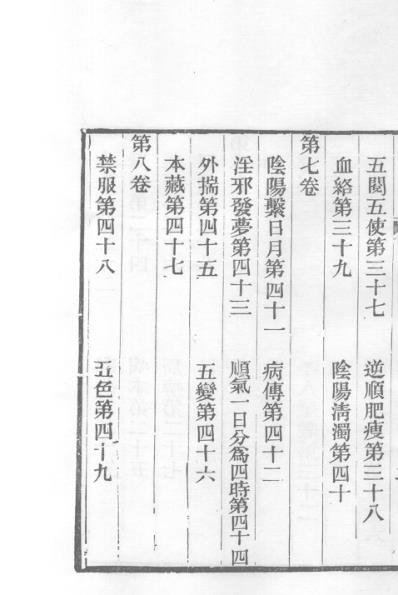 五閱五使第三十七　逆順肥瘦第三十八
血絡第三十九　陰陽淸濁第四十
第七卷
陰陽繫日月第四十一　病傳第四十二
淫邪發夢第四十三　順氣一日分爲四時第四十四
外揣第四十五　五變第四十六
本藏第四十七
第八卷
禁服第四十八　五色第四十九